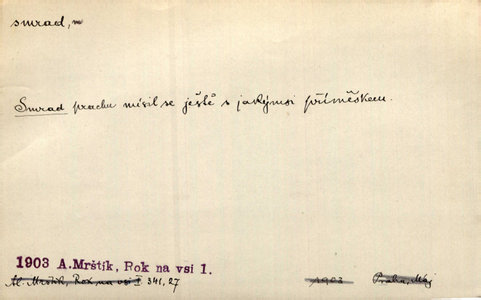 smrad, m
Smrad prachu mísil se ještě s jakýmsi příměškem.
1903 A.Mrštík, Rok na vsi 1.
Al. Mrštík, Rok na vsi I 341, 27 1903 Praha, Máj